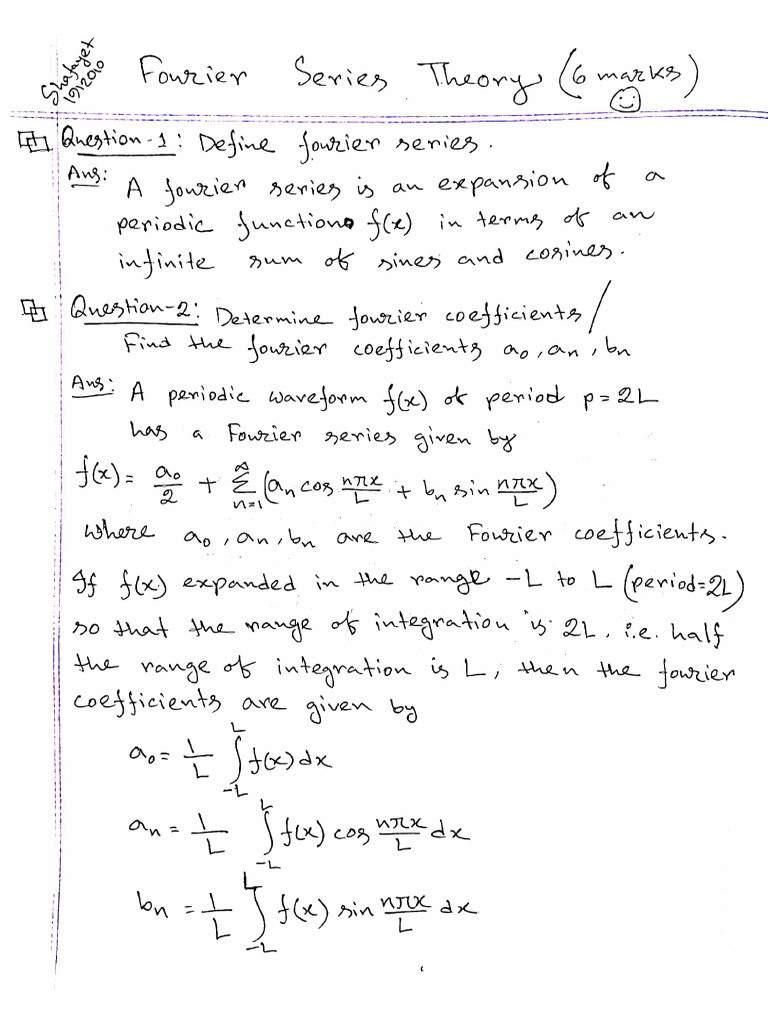 Shafayet
19/2010
Fourier Series Theory (6 marks)
Question-1: Define fourier series.
Ans: A fourier series is an expansion of a
periodic function f(x) in terms of an
infinite sum of sines and cosines.
Question-2: Determine fourier coefficients/
Find the fourier coefficients a₀, aₙ, bₙ
Ans: A periodic waveform f(x) of period p = 2L
has a Fourier series given by
f(x) = a₀/2 + ∑_{n=1}^{∞} (aₙ cos nπx/L + bₙ sin nπx/L)
where a₀, aₙ, bₙ are the Fourier coefficients.
If f(x) expanded in the range -L to L (period=2L)
so that the range of integration is 2L, i.e. half
the range of integration is L, then the fourier
coefficients are given by
a₀ = 1/L ∫_{-L}^{L} f(x) dx
aₙ = 1/L ∫_{-L}^{L} f(x) cos nπx/L dx
bₙ = 1/L ∫_{-L}^{L} f(x) sin nπx/L dx